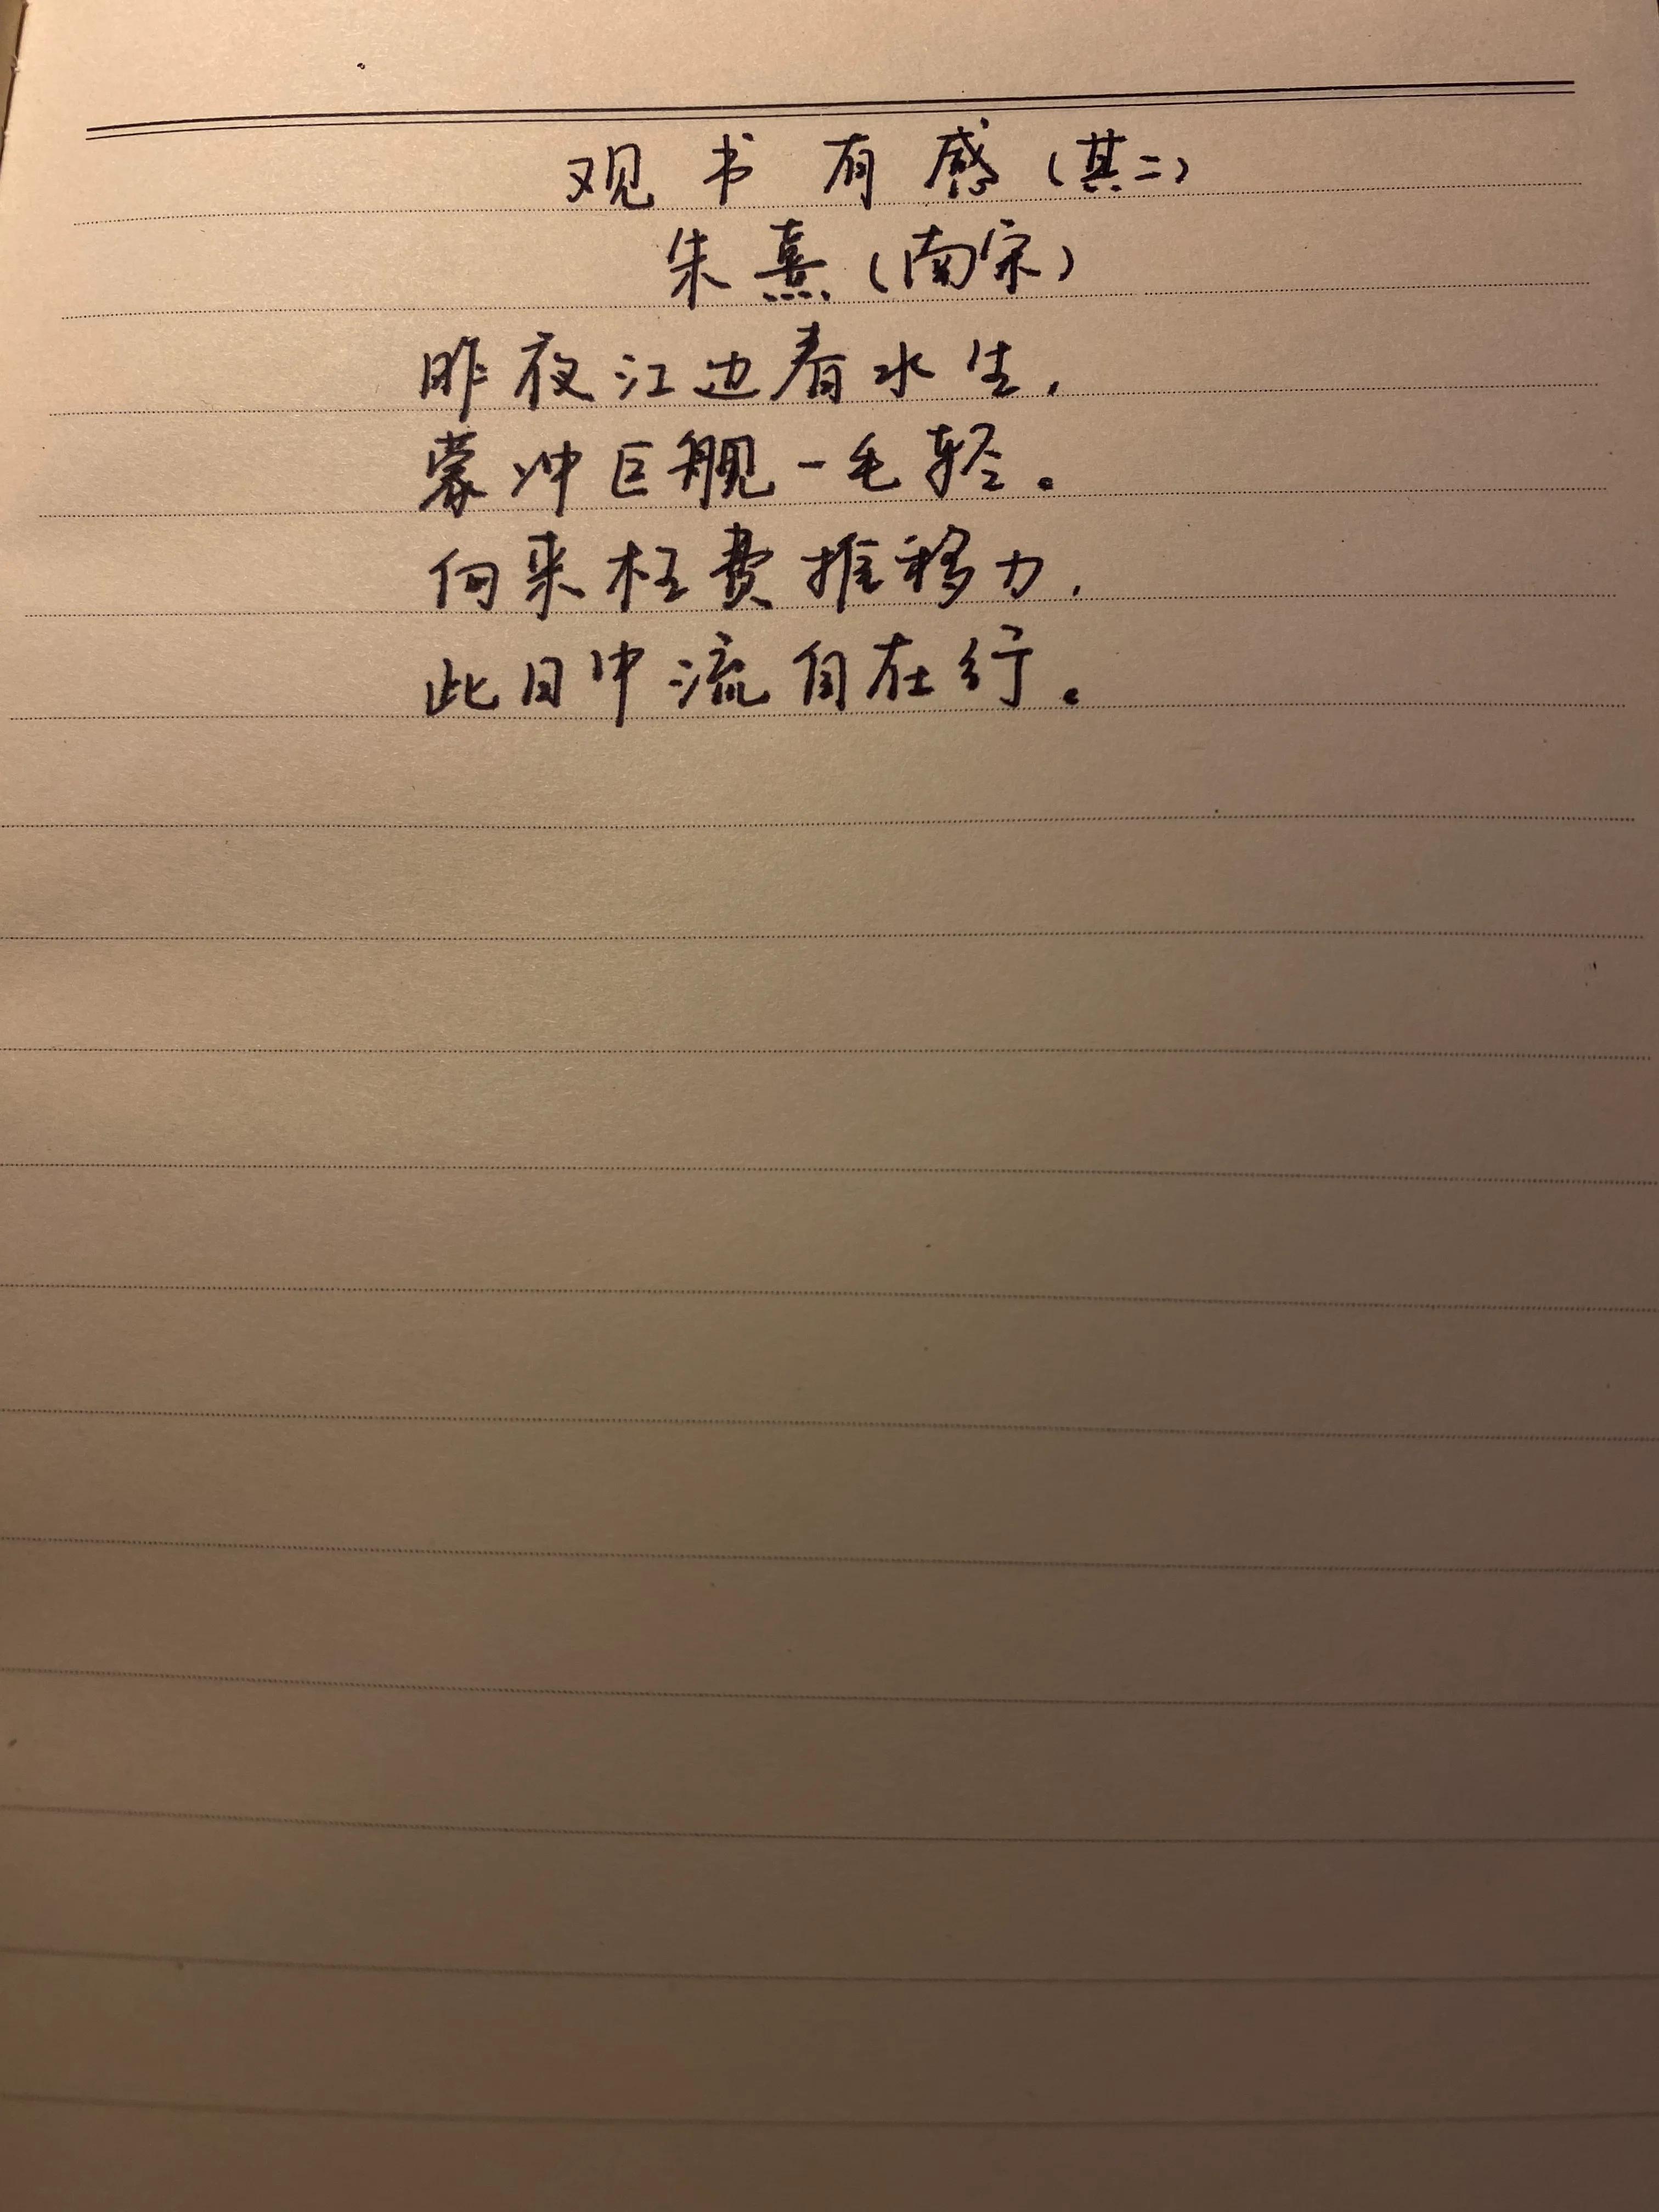 观书有感(其二)
朱熹(南宋)
昨夜江边春水生,
蒙冲巨舰一毛轻。
向来枉费推移力,
此日中流自在行。